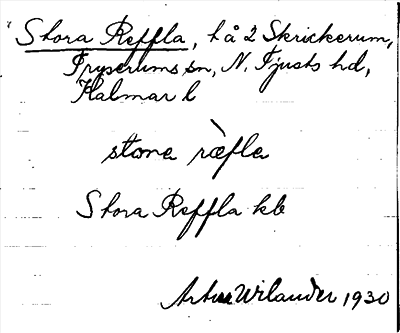 Stora Reffla, t å 2 Skrickerum,
Tryserums sn, N. Tjusts hd,
Kalmar l
stora ræ̀fla
Stora Reffla kb
Artur Wilander 1930